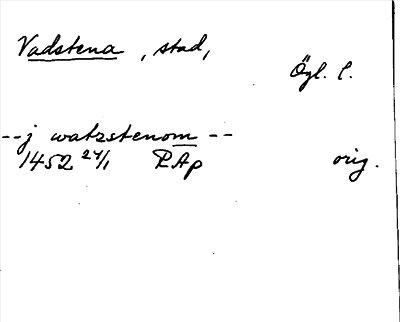 Vadstena, stad,
Ögl. l.
--j watzstenom--
1452 24/1 RAp orig.